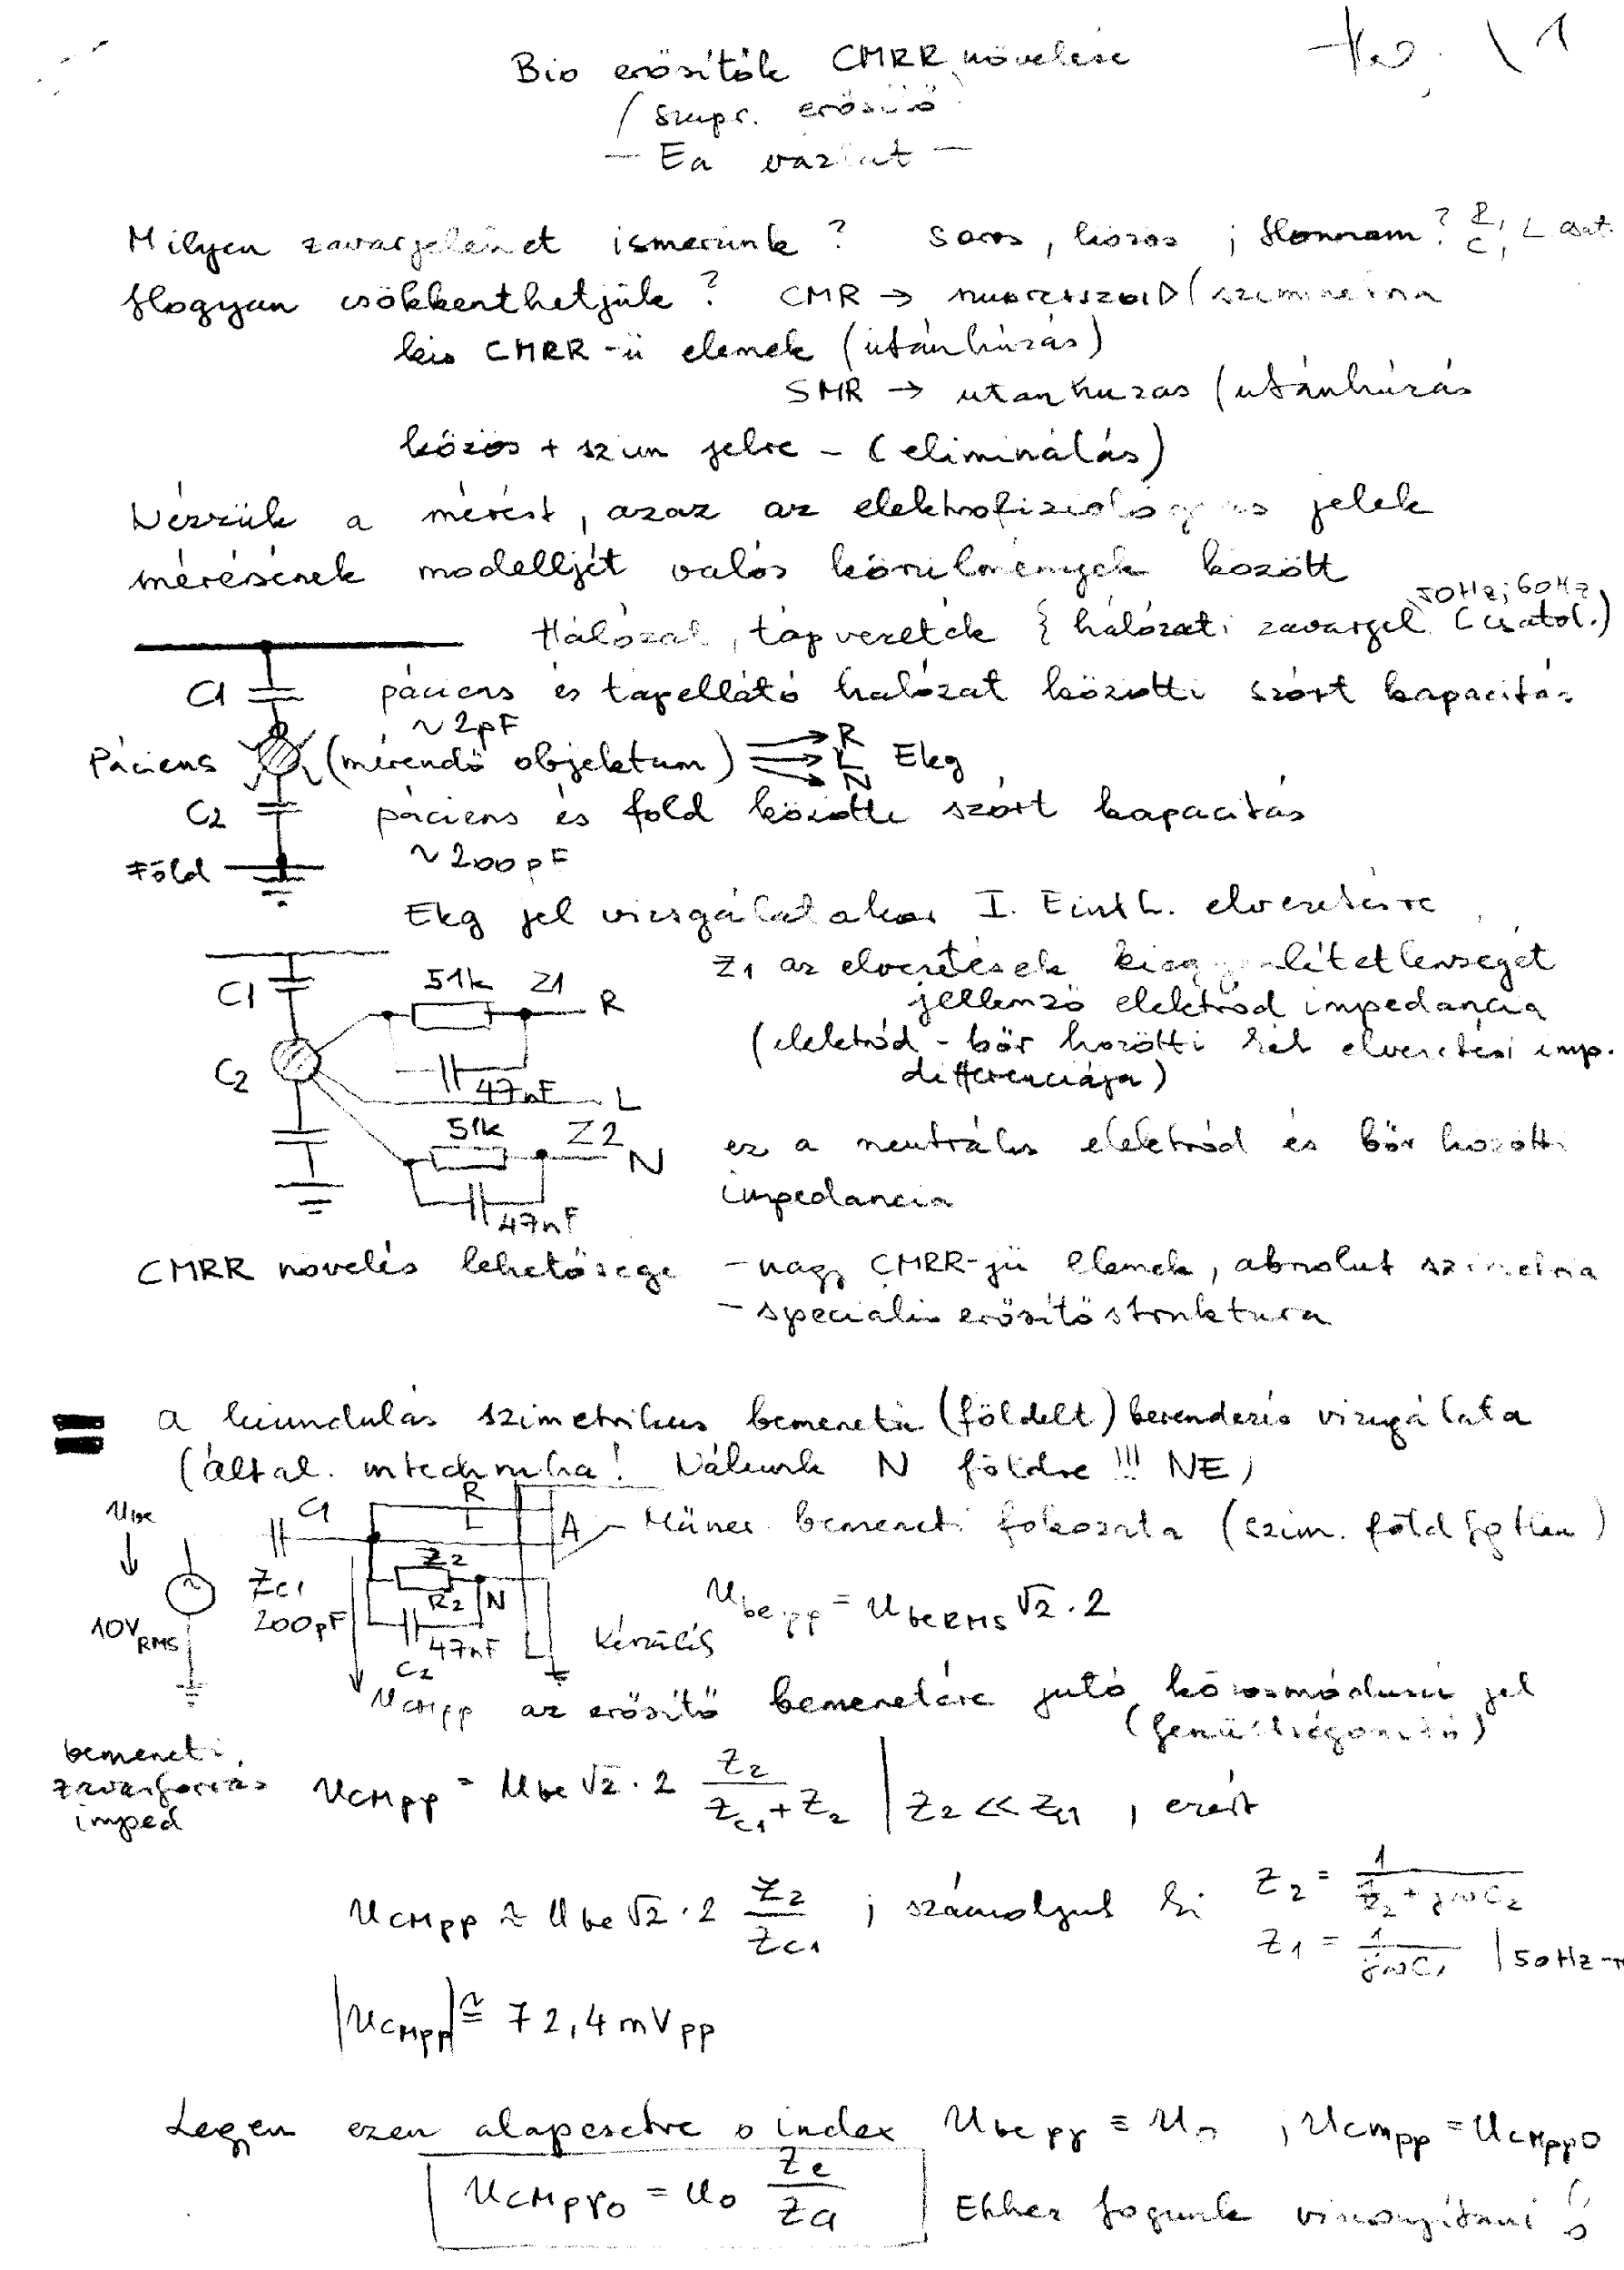 Bio erősítők CMRR növelése
/ szupr. erősítő
– Ea vázlat –
1
Milyen zavarjeleket ismerünk? Soros, közös ; Honnan? R, C, L csat.
Hogyan csökkenthetjük? CMR → (szimmetria
kis CMRR-ű elemek (utánhúzás)
SMR → utanhuzas (utánhúzás
közös + szim jelre – (eliminálás)
Nézzük a mérést, azaz az elektrofiziológiás jelek
mérésének modelljét valós körülmények között
50Hz; 60Hz
Hálózat, tápvezeték } hálózati zavarjel (csatol.)
C1 páciens és tápellátó hálózat közötti szórt kapacitás
~ 2pF
Páciens (mérendő objektum) R L N Ekg
C2 páciens és föld közötti szórt kapacitás
Föld ~ 200pF
Ekg jel vizsgálatakor I. Einth. elvezetésre
C1 51k Z1 R Z1 az elvezetések kiegyenlítetlenségét
jellemző elektród impedancia
C2 (elektród - bőr közötti két elvezetési imp.
47nF L differenciája)
51k Z2 N ez a neutrális elektród és bőr közötti
47nF impedancia
CMRR növelés lehetősége – nagy CMRR-jű elemek, abszolut szimetria
– speciális erősítőstruktura
= a kiindulás szimetrikus bemenetű (földelt) berendezés vizsgálata
(által. mtechnika! Nálunk N földre!!! NE)
Ube C1 R L A – Műszer bemeneti fokozata (szim. földfgtlen)
ZC1 Z2
10V RMS 200pF R2 N Ube pp = Ube RMS √2 · 2
47nF Készülés
C2
UCMpp az erősítő bemenetére jutó közösmódusú jel
(feszültségosztó)
bemeneti
zavarforrás
imped
UCMpp = Ube √2 · 2 Z2 / (ZC1 + Z2) | Z2 << ZC1 , ezért
UCMpp ≈ Ube √2 · 2 Z2 / ZC1 ; számoljuk ki Z2 = 1 / (1/R2 + jωC2)
Z1 = 1 / jωC1 | 50Hz-n
|UCMpp| ≅ 72,4 mVpp
Legyen ezen alapesetre o index Ube pp ≡ U0 ; UCMpp = UCMpp0
UCMpp0 = U0 Z2 / ZC1 Ehhez fogunk viszonyítani!